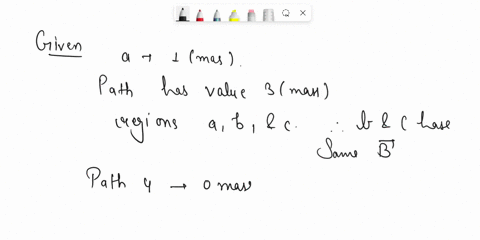 Given
a → 1 (mas).
Path has value 3 (mas)
regions a, b, & c. ∴ b & c have
Same B⃗
Path 4 → 0 mas